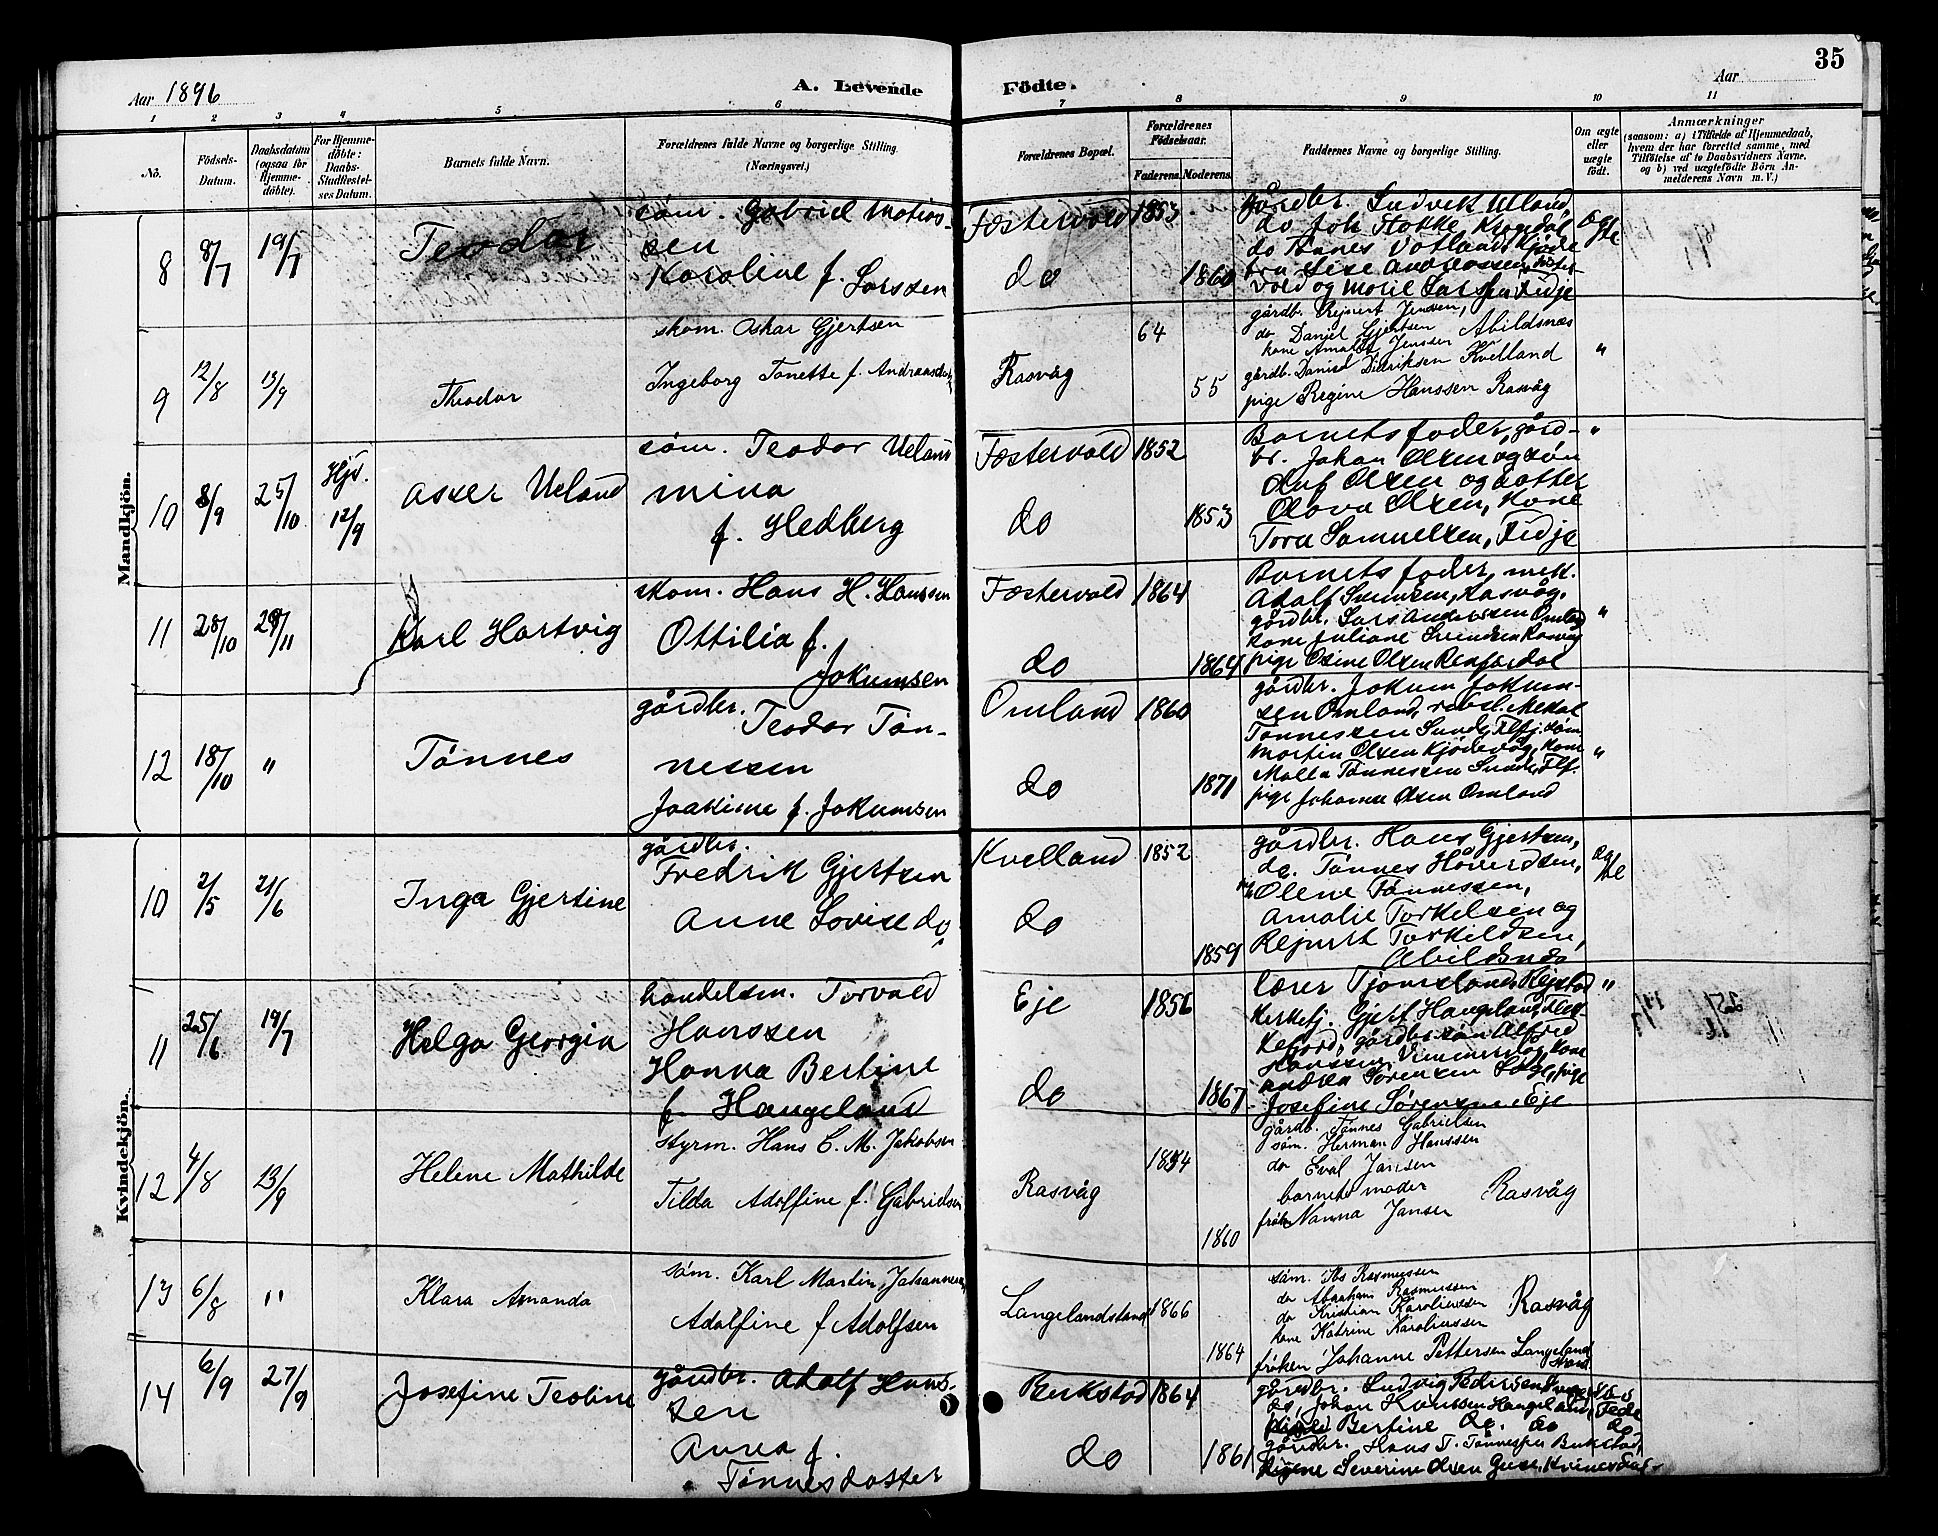 35
Aar 1896
A. Levende
Födte.
Aar
1 2 3 4 5 6 7 8 9 10 11
No.
Födsels-Datum.
Daabsdatum (ogsaa for Hjemmedöbte).
For Hjemmedöbte: Daabs-Stadfæstelses Datum.
Barnets fulde Navn.
Forældrenes fulde Navne og borgerlige Stilling. (Næringsvei.)
Forældrenes Bopæl.
Forældrenes Födselsaar.
Faderens. Moderens.
Faddernes Navne og borgerlige Stilling.
Om ægte eller uægte födt.
Anmærkninger
(saasom: a) i Tilfælde af Hjemmedaab, hvem der har forrettet samme, med Tilföielse af to Daabsvidners Navne, og b) ved uægtefödte Börn Anmelderens Navn m. V.)
Mandkjön.
8 8/7 19/7 Teodor
söm. Gabriel Matias-
sen
Karoline f. Larssen
Fæstervold 1853
do 1860
gårdbr. Ludvik Uland
do Joh Stokke
do Tønnes Votland
ægte
9 12/8 13/9 Theodor
skom. Oskar Gjertsen
Ingeborg Tonette f.
Rasvåg 64
55
gårdb. Rejnert Jenssen,
do Daniel Gjertsen Abildsnæs
kone Amalie Jenssen
gårdb. Daniel Didriksen Kvelland
pige Regine Hanssen Rasvåg
"
10 8/9 25/10 Hjd. 12/9 Asser Ueland
söm. Teodor Ueland
Mina
f. Hedberg
Fæstervold 1852
do 1853
Barnets fader, gård-
br. Johan Olsen og søn
Oluf Olsen og datter
Olava Olsen, kone
Tora Samuelsen, Fidje
"
11 28/10 29/11 Karl Hartvig
skom. Hans H. Hanssen
Ottilia f.
Jokumsen
Fæstervold 1864
do 1864
Barnets fader, mek.
Adolf Svensen, Rasvåg,
gårdbr. Lars Anderssen Omland
kone Juliane Svendsen Rasvåg
pige Osine Olsen
"
12 18/10 " Tønnes
gårdbr.
Teodor Tøn-
nessen
Joakime f. Jokumsen
Omland 1860
do 1871
gårdbr. Jokum Jokum-
sen Omland,
Tønnessen Sunde, Flfj. söm
Martin Olsen Kjødevåg, kone
Malla Tønnessen Sunde, Flf.
pige Johanna Olsen Omland
"
Kvindekjön.
10 2/5 21/6 Inga Gjertine
gårdbr.
Fredrik Gjertsen
Anne Lovise do
Kvelland 1852
do 1859
gårdbr. Hans Gjertsen,
do. Tønnes Håverdsen,
Olene Tønnessen,
Amalie Torkelsen og
Rejnert Torkildsen,
Abildsnæs
ægte
11 25/6 19/7 Helga Georgia
handelsm. Torvald
Hanssen
Hanna Bertine
f. Hangeland
Eje 1856
do 1867
lærer Tjomsland, Rejstad
kirkesj. Gjert Hangeland, Flek-
kefjord, gårdbr. søn Alfred
Hanssen kone
Andrea Sørensen pige
Josefine Sørensen Eje
"
12 4/8 13/9 Helene Mathilde
styrm. Hans C. M. Jakobsen
Tilda Adolfine f. Gabrielsen
Rasvåg 1854
1860
gårdb. Tønnes Gabrielsen
söm. Herman Hanssen
do Eval Jansen
barnets moder Rasvåg
frøk Nanna Jansen
13 6/8 " Klara Amanda
söm. Karl Martin Johannesen
Adolfine f Adolfsen
Langelandstand 1866
1864
söm. Rasmussen
do Abraham Rasmussen
do Kristian Karoliussen Rasvåg
kone Katrine Karoliussen
frøken Johanne Pettersen Langeland
strand
14 6/9 27/9 Josefine Teoline
gårdbr. Adolf Hans-
sen
Anna f.
Tønnesdatter
Berkstad 1864
do 1861
gårdbr. Ludvig Pedersen
do, Johan Hanssen Hangeland,
Bertine do. do
gårdbr. Hans T. Tønnessen
Severine Olsen